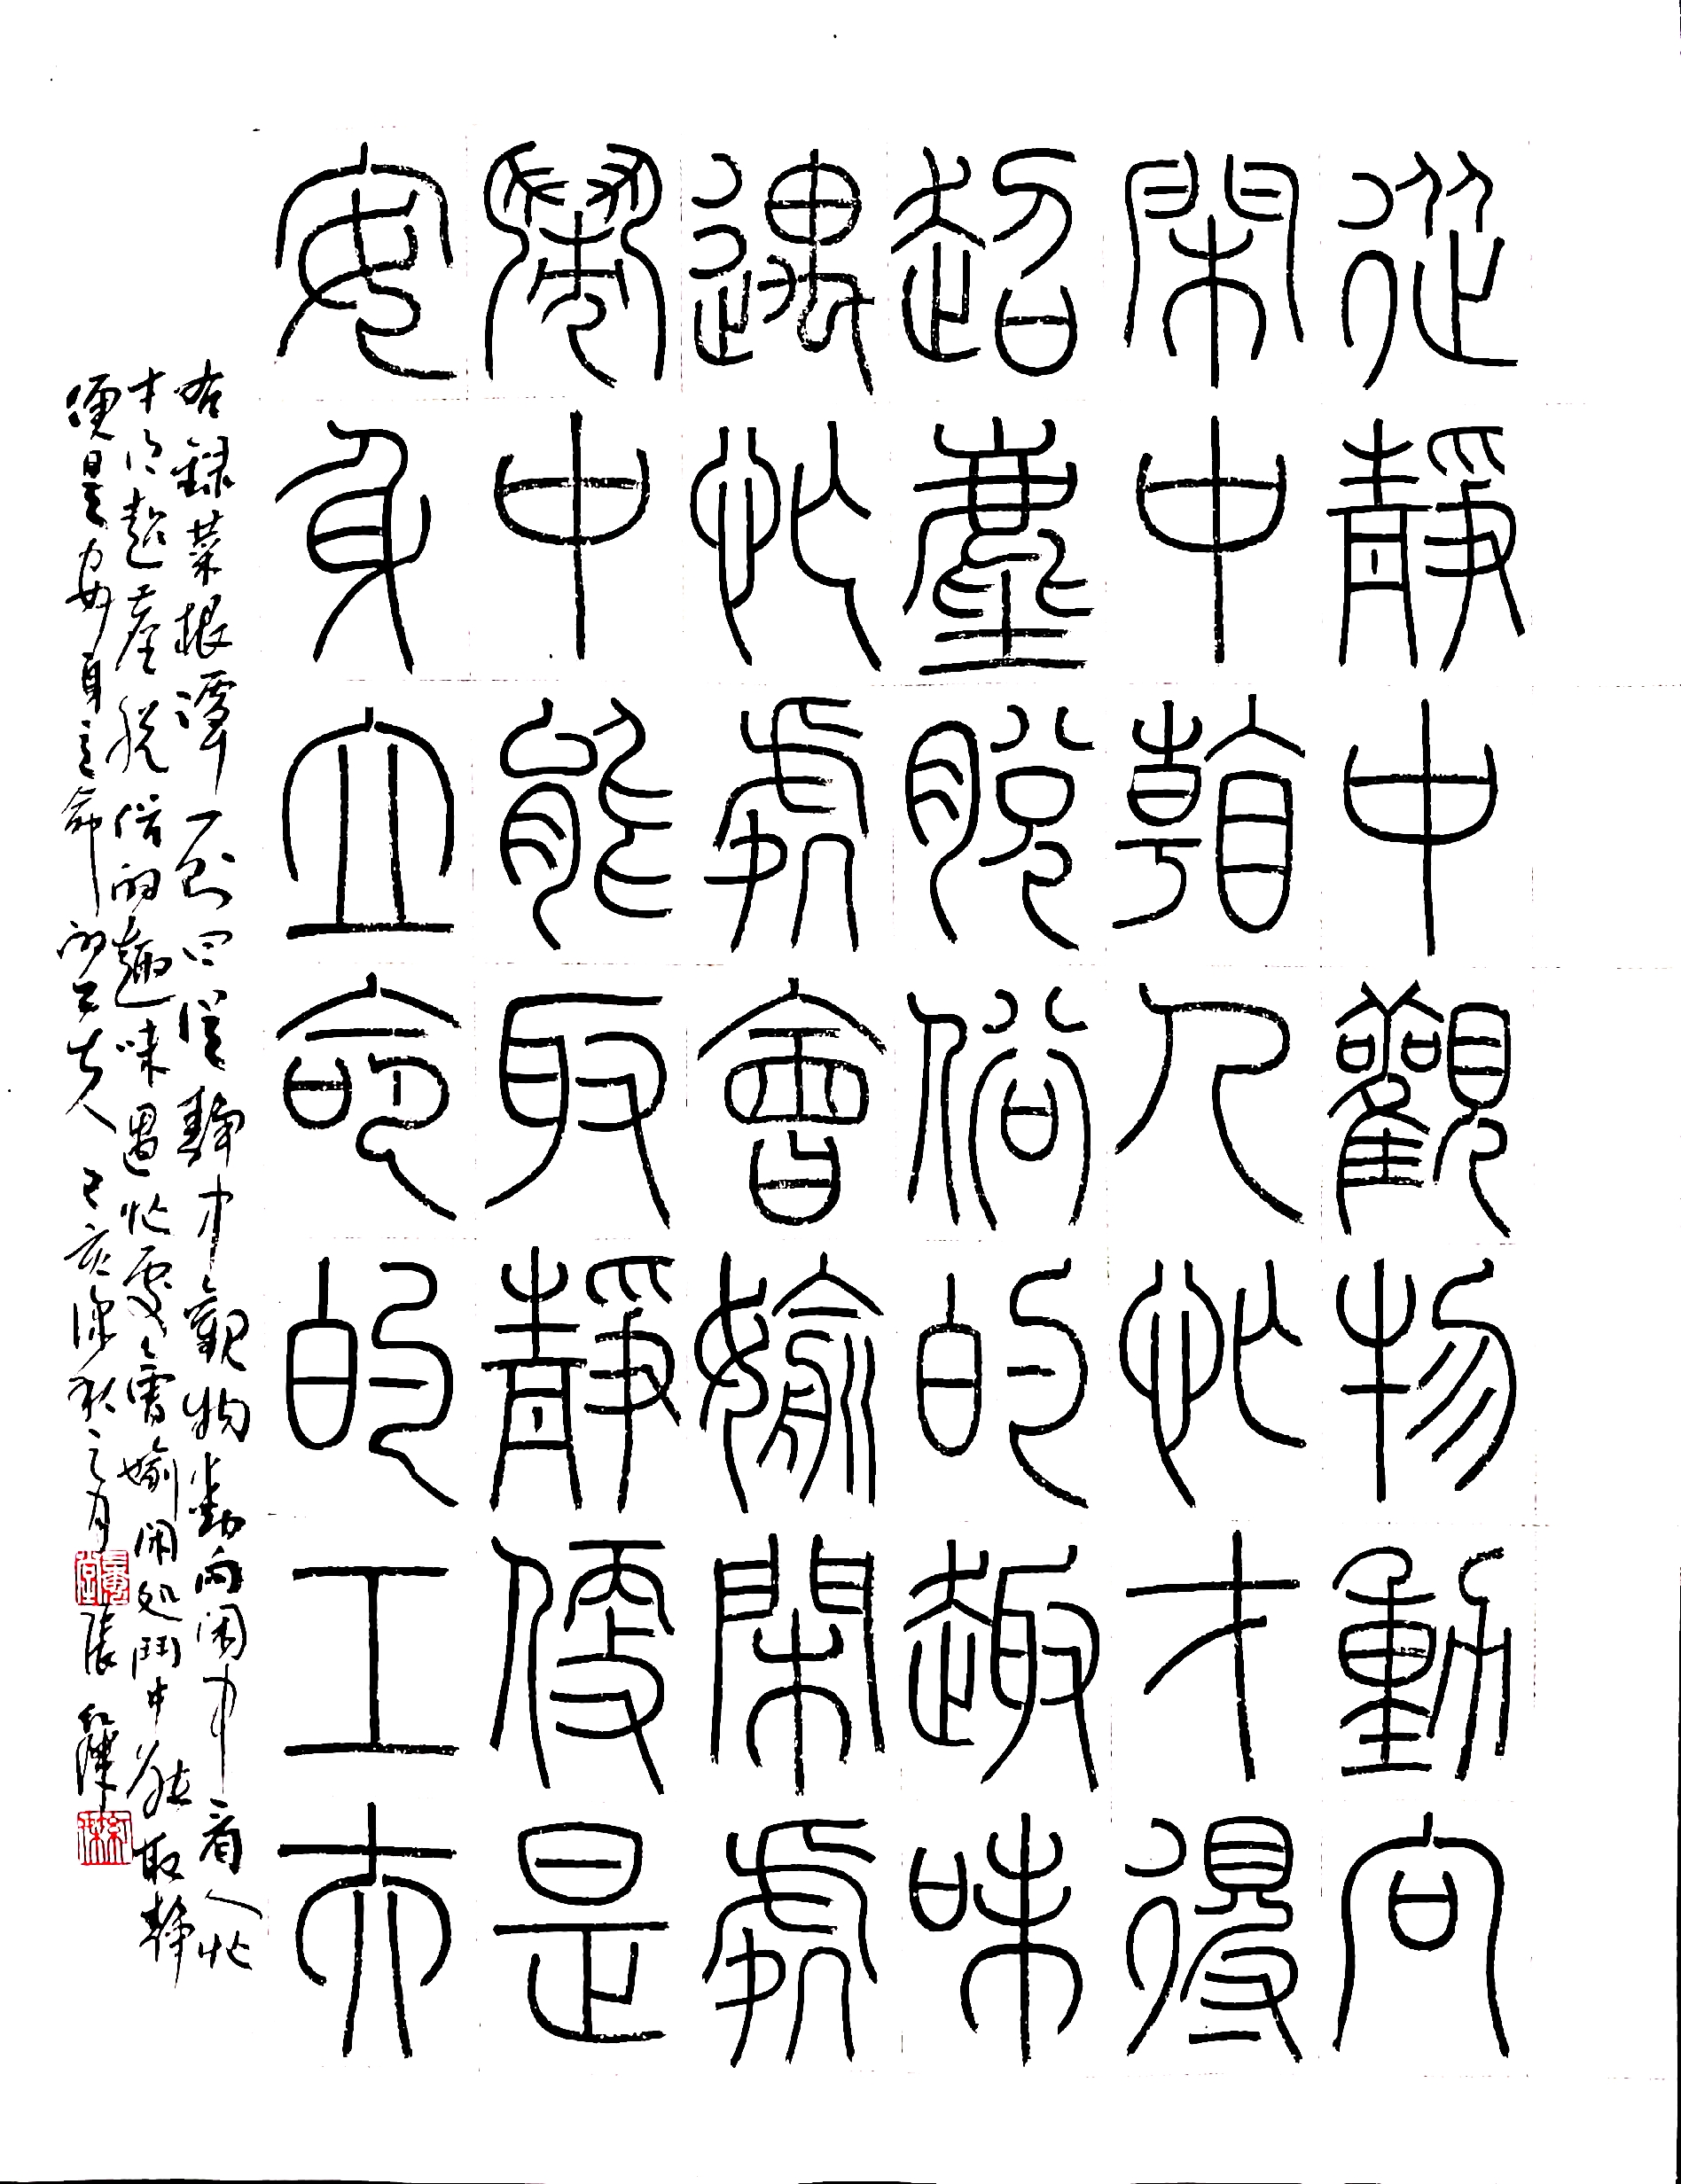 從靜中觀物動向
閑中看人忙才得
超塵脫俗的趣味
遇忙處會婾閑處
鬧中能取靜便是
安身立命的工夫
右錄菜根譚一則曰從靜中觀物動向閑中看人忙
才得超塵脫俗的趣味遇忙處會婾閑処鬥中能取靜
便是安身立命的工夫 己亥深秋之月 張